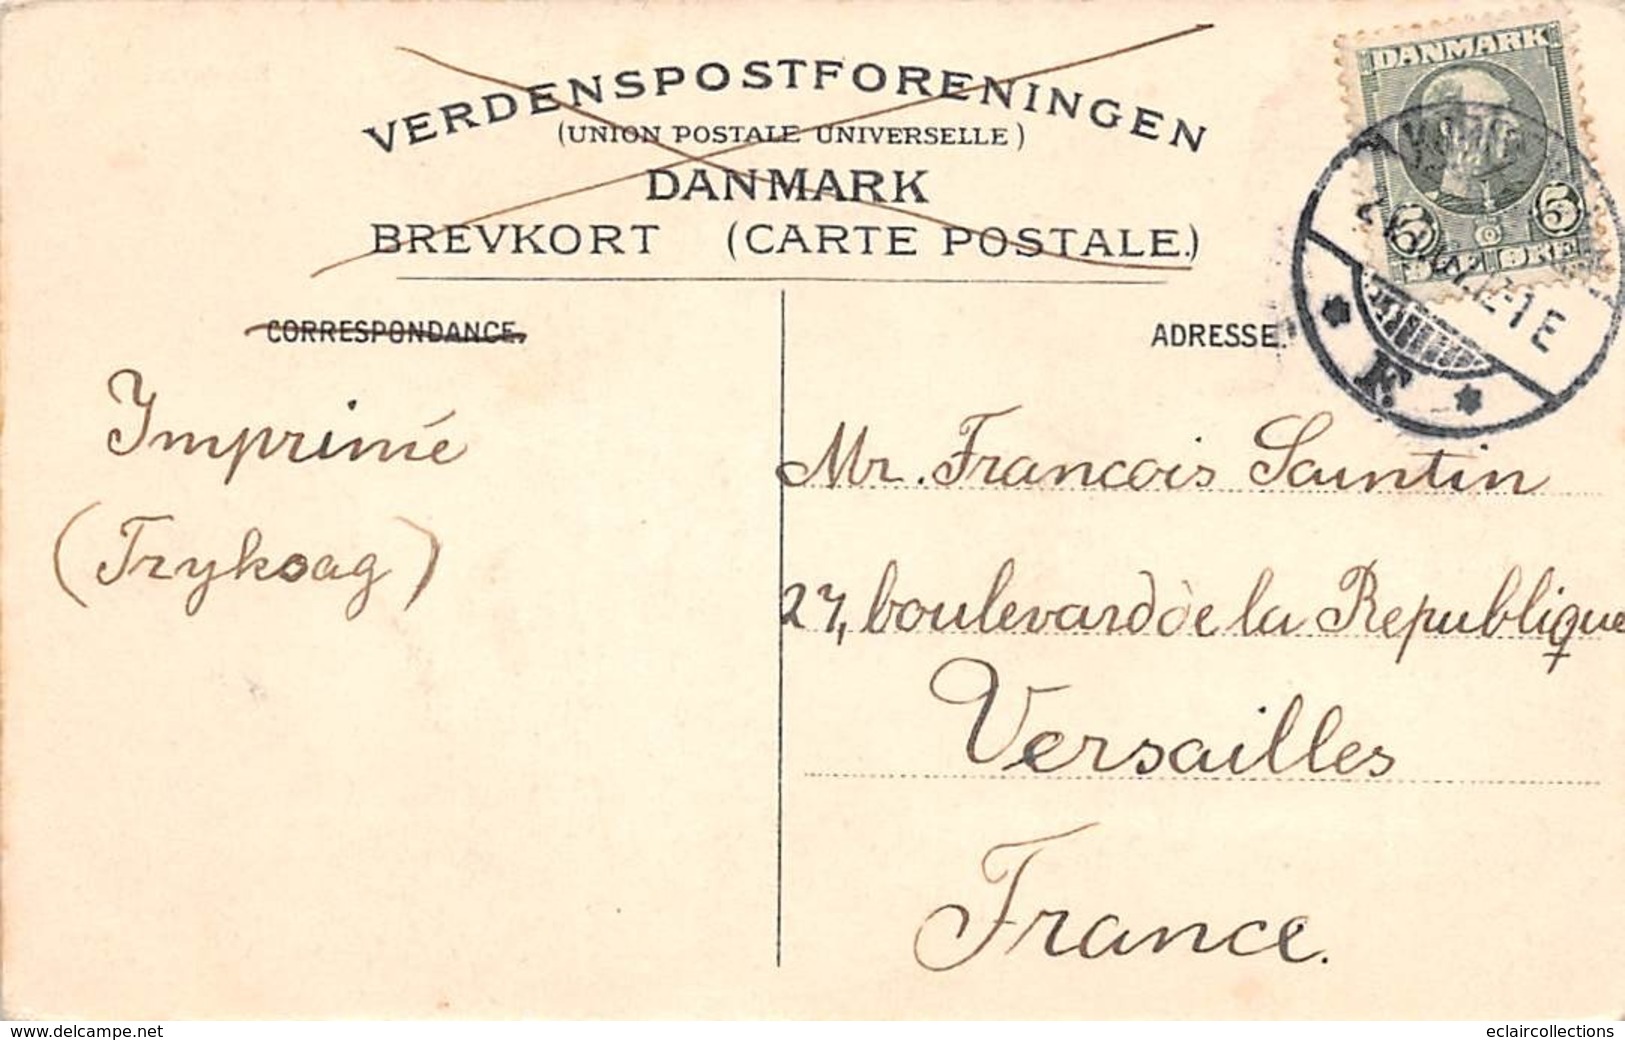 VERDENSPOSTFORENINGEN
(UNION POSTALE UNIVERSELLE)
DANMARK
BREVKORT (CARTE POSTALE.)
CORRESPONDANCE.
ADRESSE
DANMARK
5 5
ØRE
2-1 E
F.
Imprimé
(Tryksag)
Mr. Francois Saintin
27, boulevard de la Republique
Versailles
France.
www.delcampe.net
eclaircollections